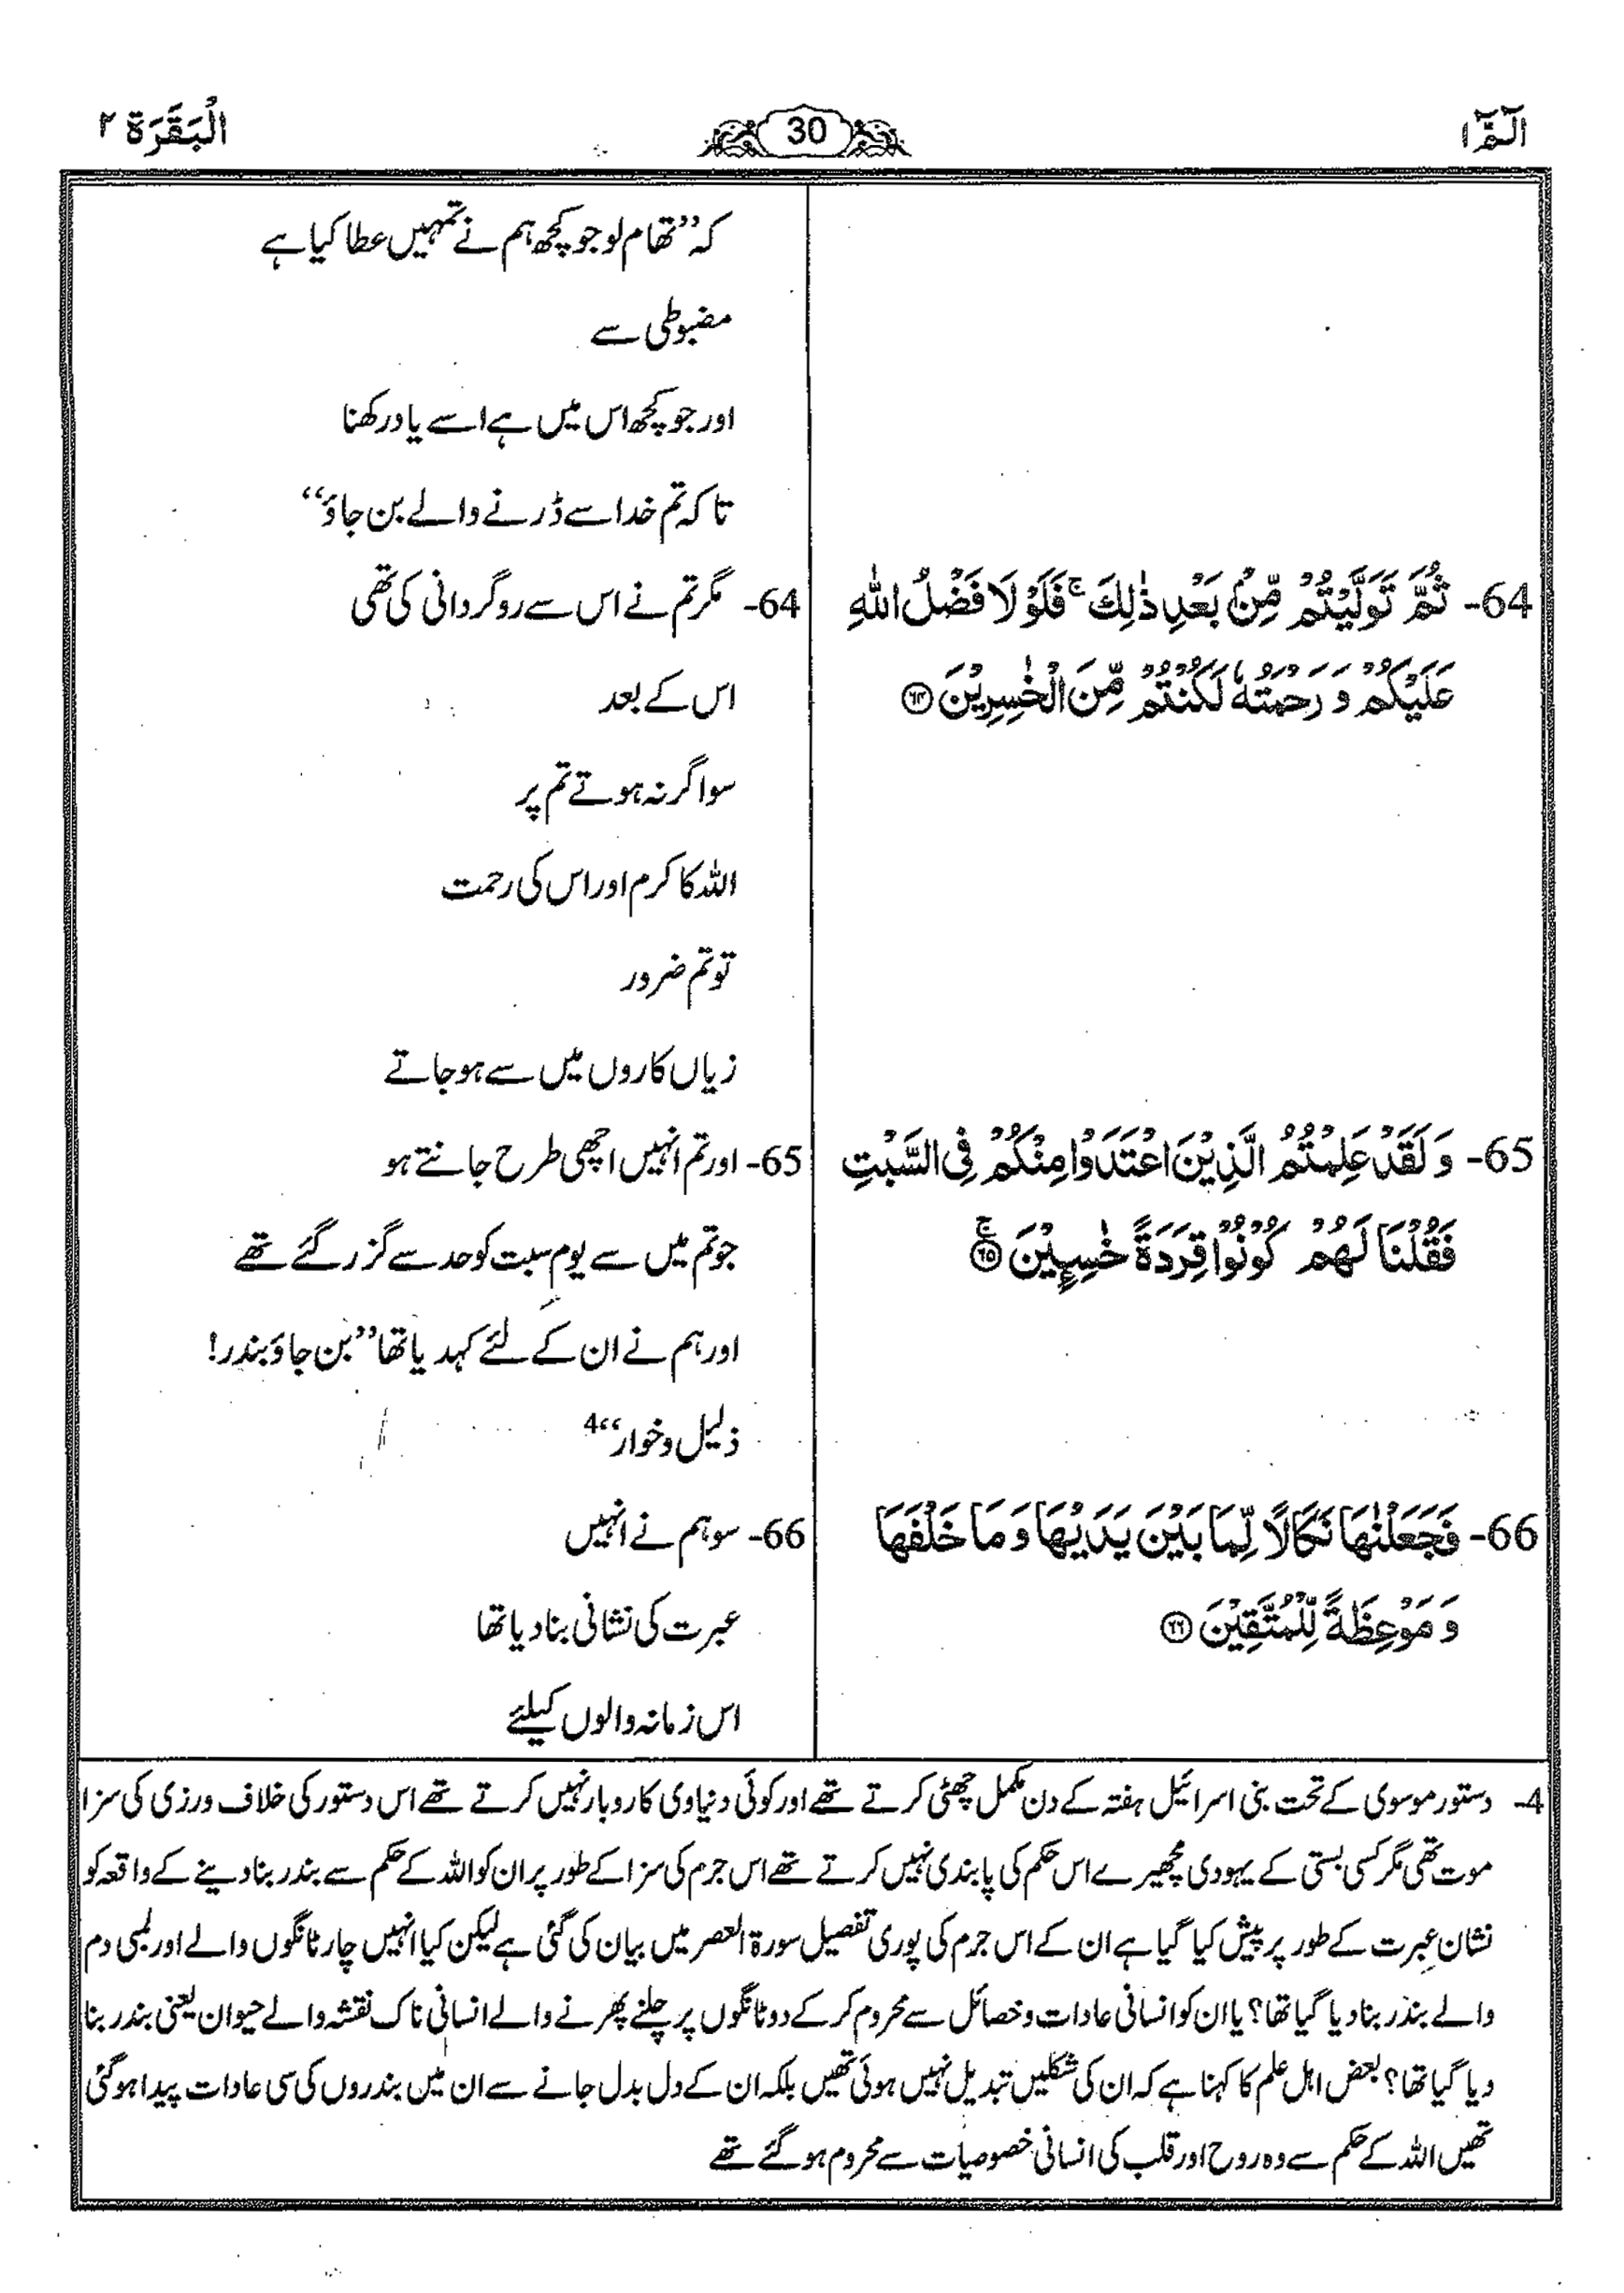 الٓمّٓ ۱
30
الْبَقَرَة ۲
کہ ’’تھام لو جو کچھ ہم نے تمہیں عطا کیا ہے
مضبوطی سے
اور جو کچھ اس میں ہے اسے یاد رکھنا
تاکہ تم خدا سے ڈرنے والے بن جاؤ‘‘
64- ثُمَّ تَوَلَّيْتُمْ مِّنْۢ بَعْدِ ذٰلِكَ ۚ فَلَوْ لَا فَضْلُ اللّٰهِ
عَلَيْكُمْ وَ رَحْمَتُهٗ لَكُنْتُمْ مِّنَ الْخٰسِرِيْنَ ۝۶۴
64- مگر تم نے اس سے روگردانی کی تھی
اس کے بعد
سو اگر نہ ہوتے تم پر
اللہ کا کرم اور اس کی رحمت
تو تم ضرور
زیاں کاروں میں سے ہو جاتے
65- وَ لَقَدْ عَلِمْتُمُ الَّذِيْنَ اعْتَدَوْا مِنْكُمْ فِي السَّبْتِ
فَقُلْنَا لَهُمْ كُوْنُوْا قِرَدَةً خٰسِـِٕيْنَ ۝۶۵ ۚ
65- اور تم انہیں اچھی طرح جانتے ہو
جو تم میں سے یوم سبت کو حد سے گزر گئے تھے
اور ہم نے ان کے لئے کہد یا تھا ’’بن جاؤ بندر!
ذلیل و خوار‘‘4
66- فَجَعَلْنٰهَا نَكَالًا لِّمَا بَيْنَ يَدَيْهَا وَ مَا خَلْفَهَا
وَ مَوْعِظَةً لِّلْمُتَّقِيْنَ ۝۶۶
66- سو ہم نے انہیں
عبرت کی نشانی بنا دیا تھا
اس زمانہ والوں کیلئے
4- دستور موسوی کے تحت بنی اسرائیل ہفتہ کے دن مکمل چھٹی کرتے تھے اور کوئی دنیاوی کاروبار نہیں کرتے تھے اس دستور کی خلاف ورزی کی سزا
موت تھی مگر کسی بستی کے یہودی مچھیرے اس حکم کی پابندی نہیں کرتے تھے اس جرم کی سزا کے طور پر ان کو اللہ کے حکم سے بندر بنا دینے کے واقعہ کو
نشان عبرت کے طور پر پیش کیا گیا ہے ان کے اس جرم کی پوری تفصیل سورۃ العصر میں بیان کی گئی ہے لیکن کیا انہیں چار ٹانگوں والے اور لمبی دم
والے بندر بنا دیا گیا تھا؟ یا ان کو انسانی عادات و خصائل سے محروم کر کے دو ٹانگوں پر چلنے پھرنے والے انسانی ناک نقشہ والے حیوان یعنی بندر بنا
دیا گیا تھا؟ بعض اہل علم کا کہنا ہے کہ ان کی شکلیں تبدیل نہیں ہوئی تھیں بلکہ ان کے دل بدل جانے سے ان میں بندروں کی سی عادات پیدا ہو گئی
تھیں اللہ کے حکم سے وہ روح اور قلب کی انسانی خصوصیات سے محروم ہو گئے تھے